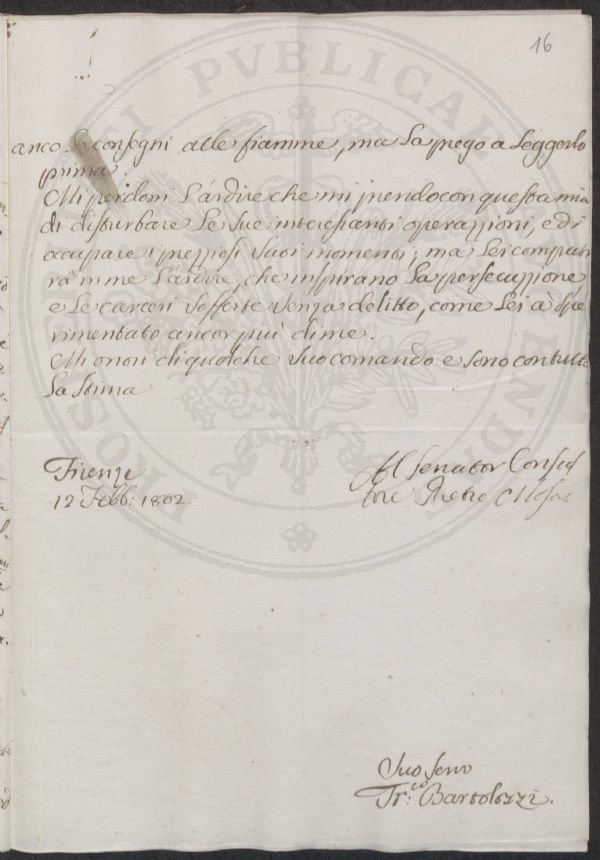 16
anco lo consegni alle fiamme, ma la prego a leggerlo
prima.
Mi perdoni l'ardire che mi prendo con questa mia
di disturbare le sue interessanti operazzioni, e di
occupare i prezziosi suoi momenti; ma Lei compati
rà in me l'ardire, che inspirano la persecuzzione
e le carceri sofferte senza delitto, come Lei à spe
rimentato ancor più di me.
Mi onori di qualche suo comando e sono con tutta
la stima
Firenze
12 Febb: 1802.
Al Senator Consul
tore Pietro
Suo servo
Fr:co Bartolozzi.